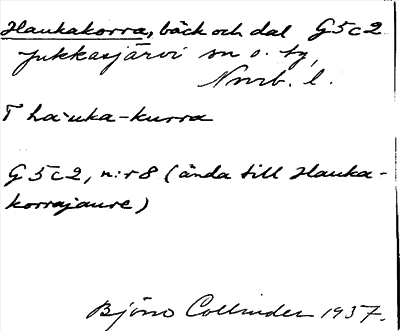 Haukakorra, bäck och dal G5c2
Jukkasjärvi sn o. tg,
Norrb. l.
T ha·uka-kurra
G5c2, n:r 8 (ända till Hauka-
korrajaure)
Björn Collinder 1937.